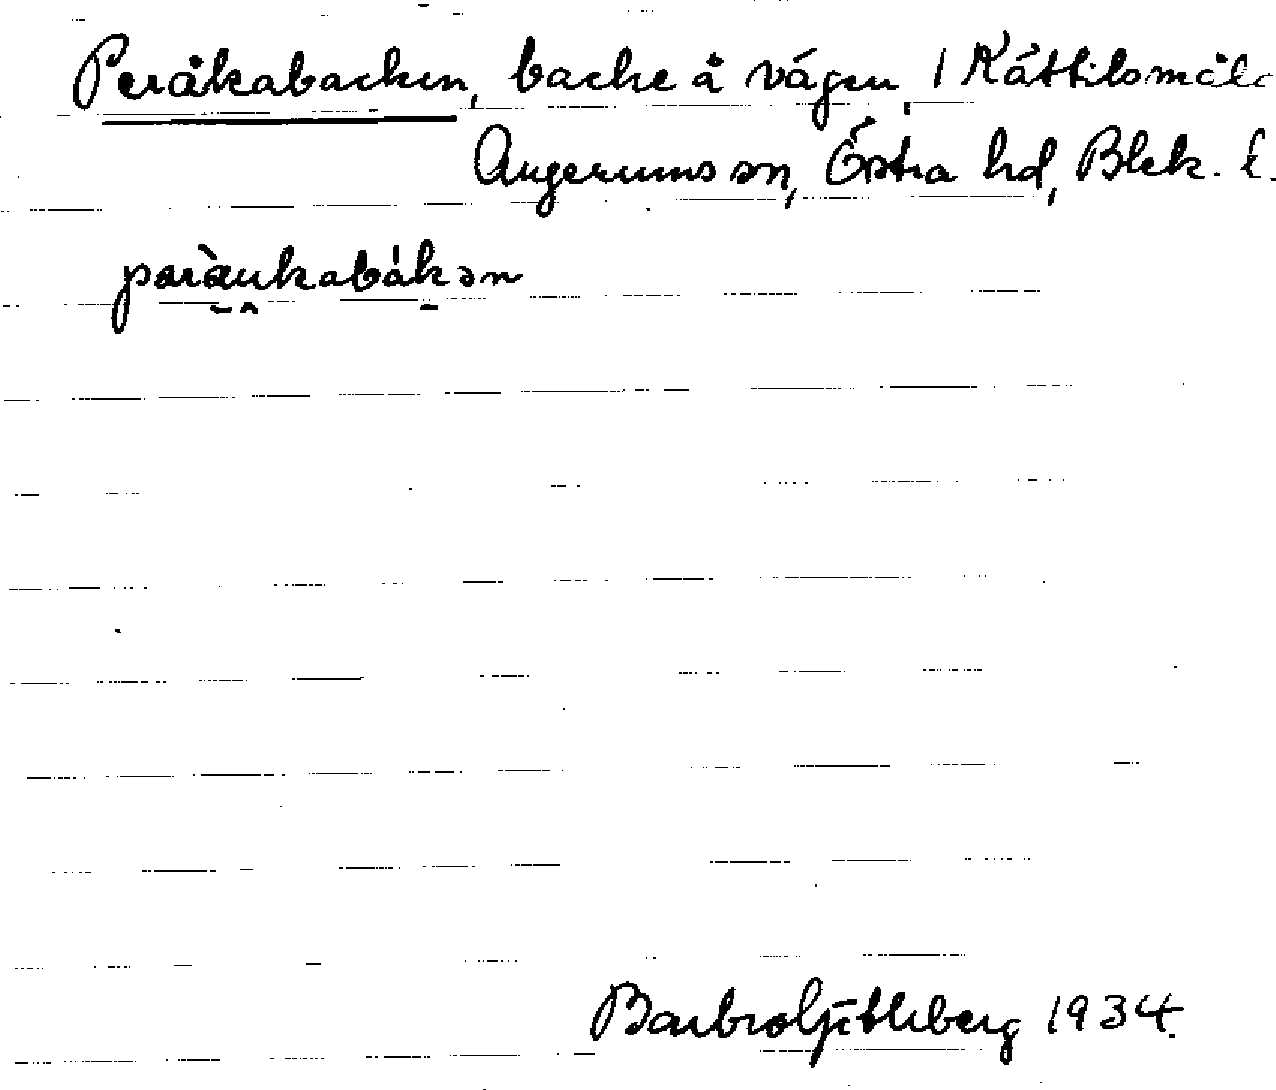 Peråkabacken, backe å vägen, i Kättilsmåla
Augerums sn, Östra hd, Blek. l.
paràukabákən
Barbro 1934.